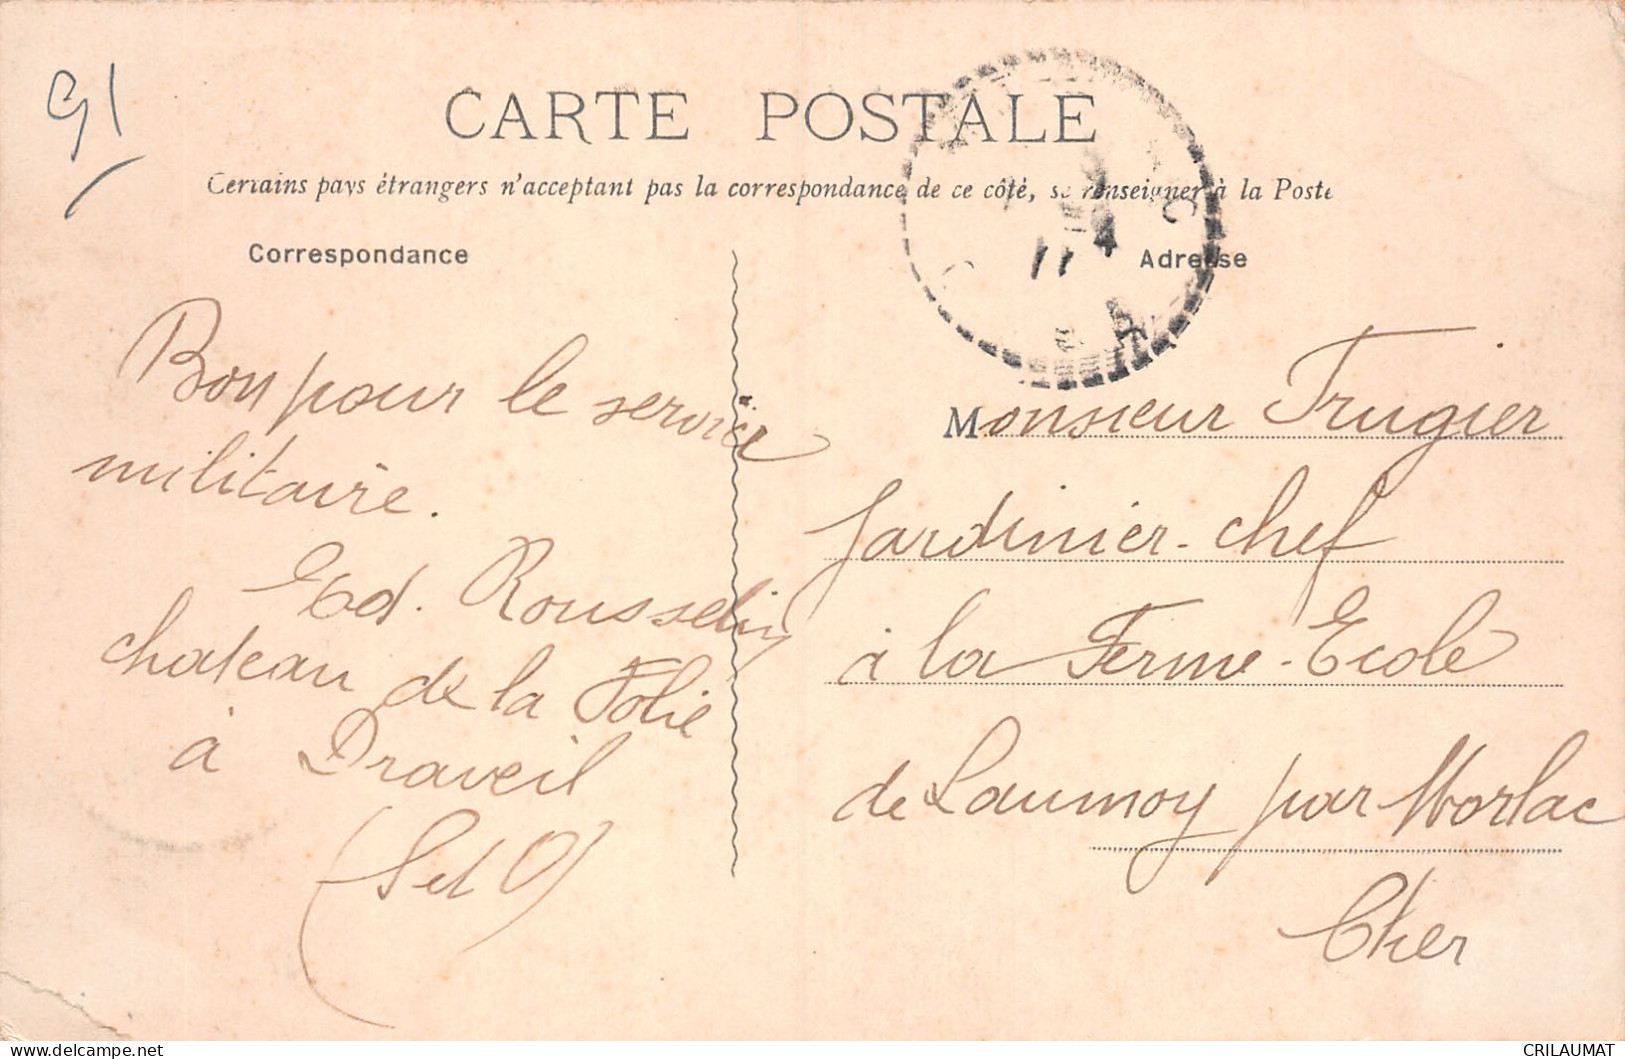 91
CARTE POSTALE
Certains pays étrangers n'acceptant pas la correspondance de ce côté, se renseigner à la Poste
Correspondance
Adresse
11 4
Bon pour le service
militaire.
Ed. Rousselin
chateau de la Folie
à Draveil
(S et O)
Monsieur Frugier
Jardinier-chef
à la Ferme-Ecole
de Laumoy par Morlac
Cher
delcampe.net
CRILAUMAT